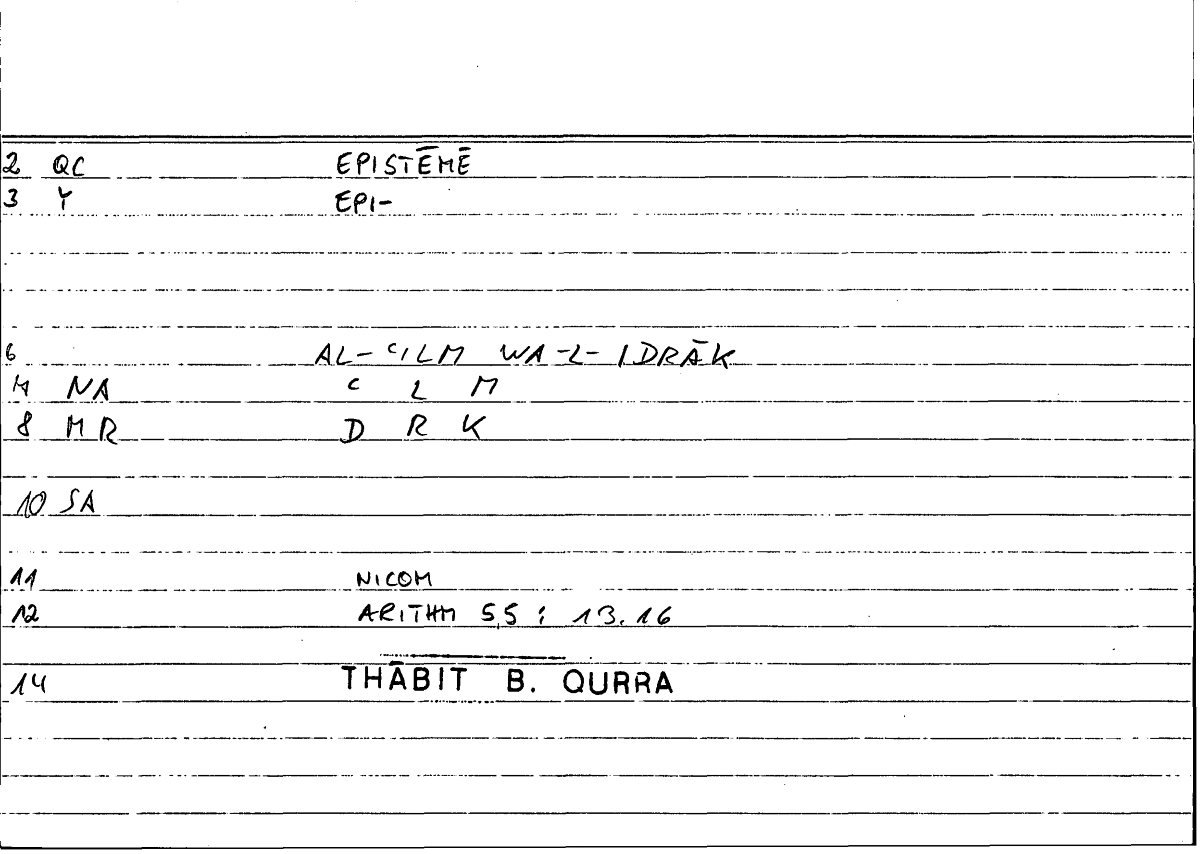 2 QC EPISTĒMĒ
3 Y EPI-
6 AL-ʿILM WA-L-IDRĀK
4 NA ʿ L M
8 MR D R K
10 SA
11 NICOM
12 ARITHM 5,5 : 13.16
14 THĀBIT B. QURRA